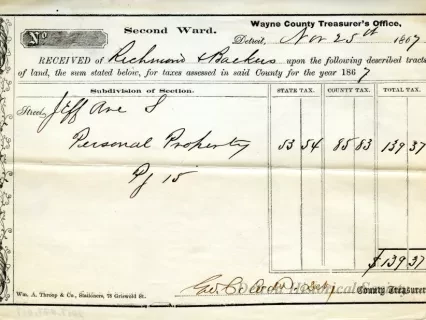 No
Second Ward.
Wayne County Treasurer's Office,
Detroit, Nov 25th 1867
RECEIVED of Richmond & Backus upon the following described tracts
of land, the sum stated below, for taxes assessed in said County for the year 1867
Subdivision of Section. STATE TAX. COUNTY TAX. TOTAL TAX.
Street, Jeff Ave S
Personal Property 53 54 85 83 139 37
Pg 15
$139 37
Detroit Historical Society
County Treasurer
Wm. A. Throop & Co., Stationers, 78 Griswold St.